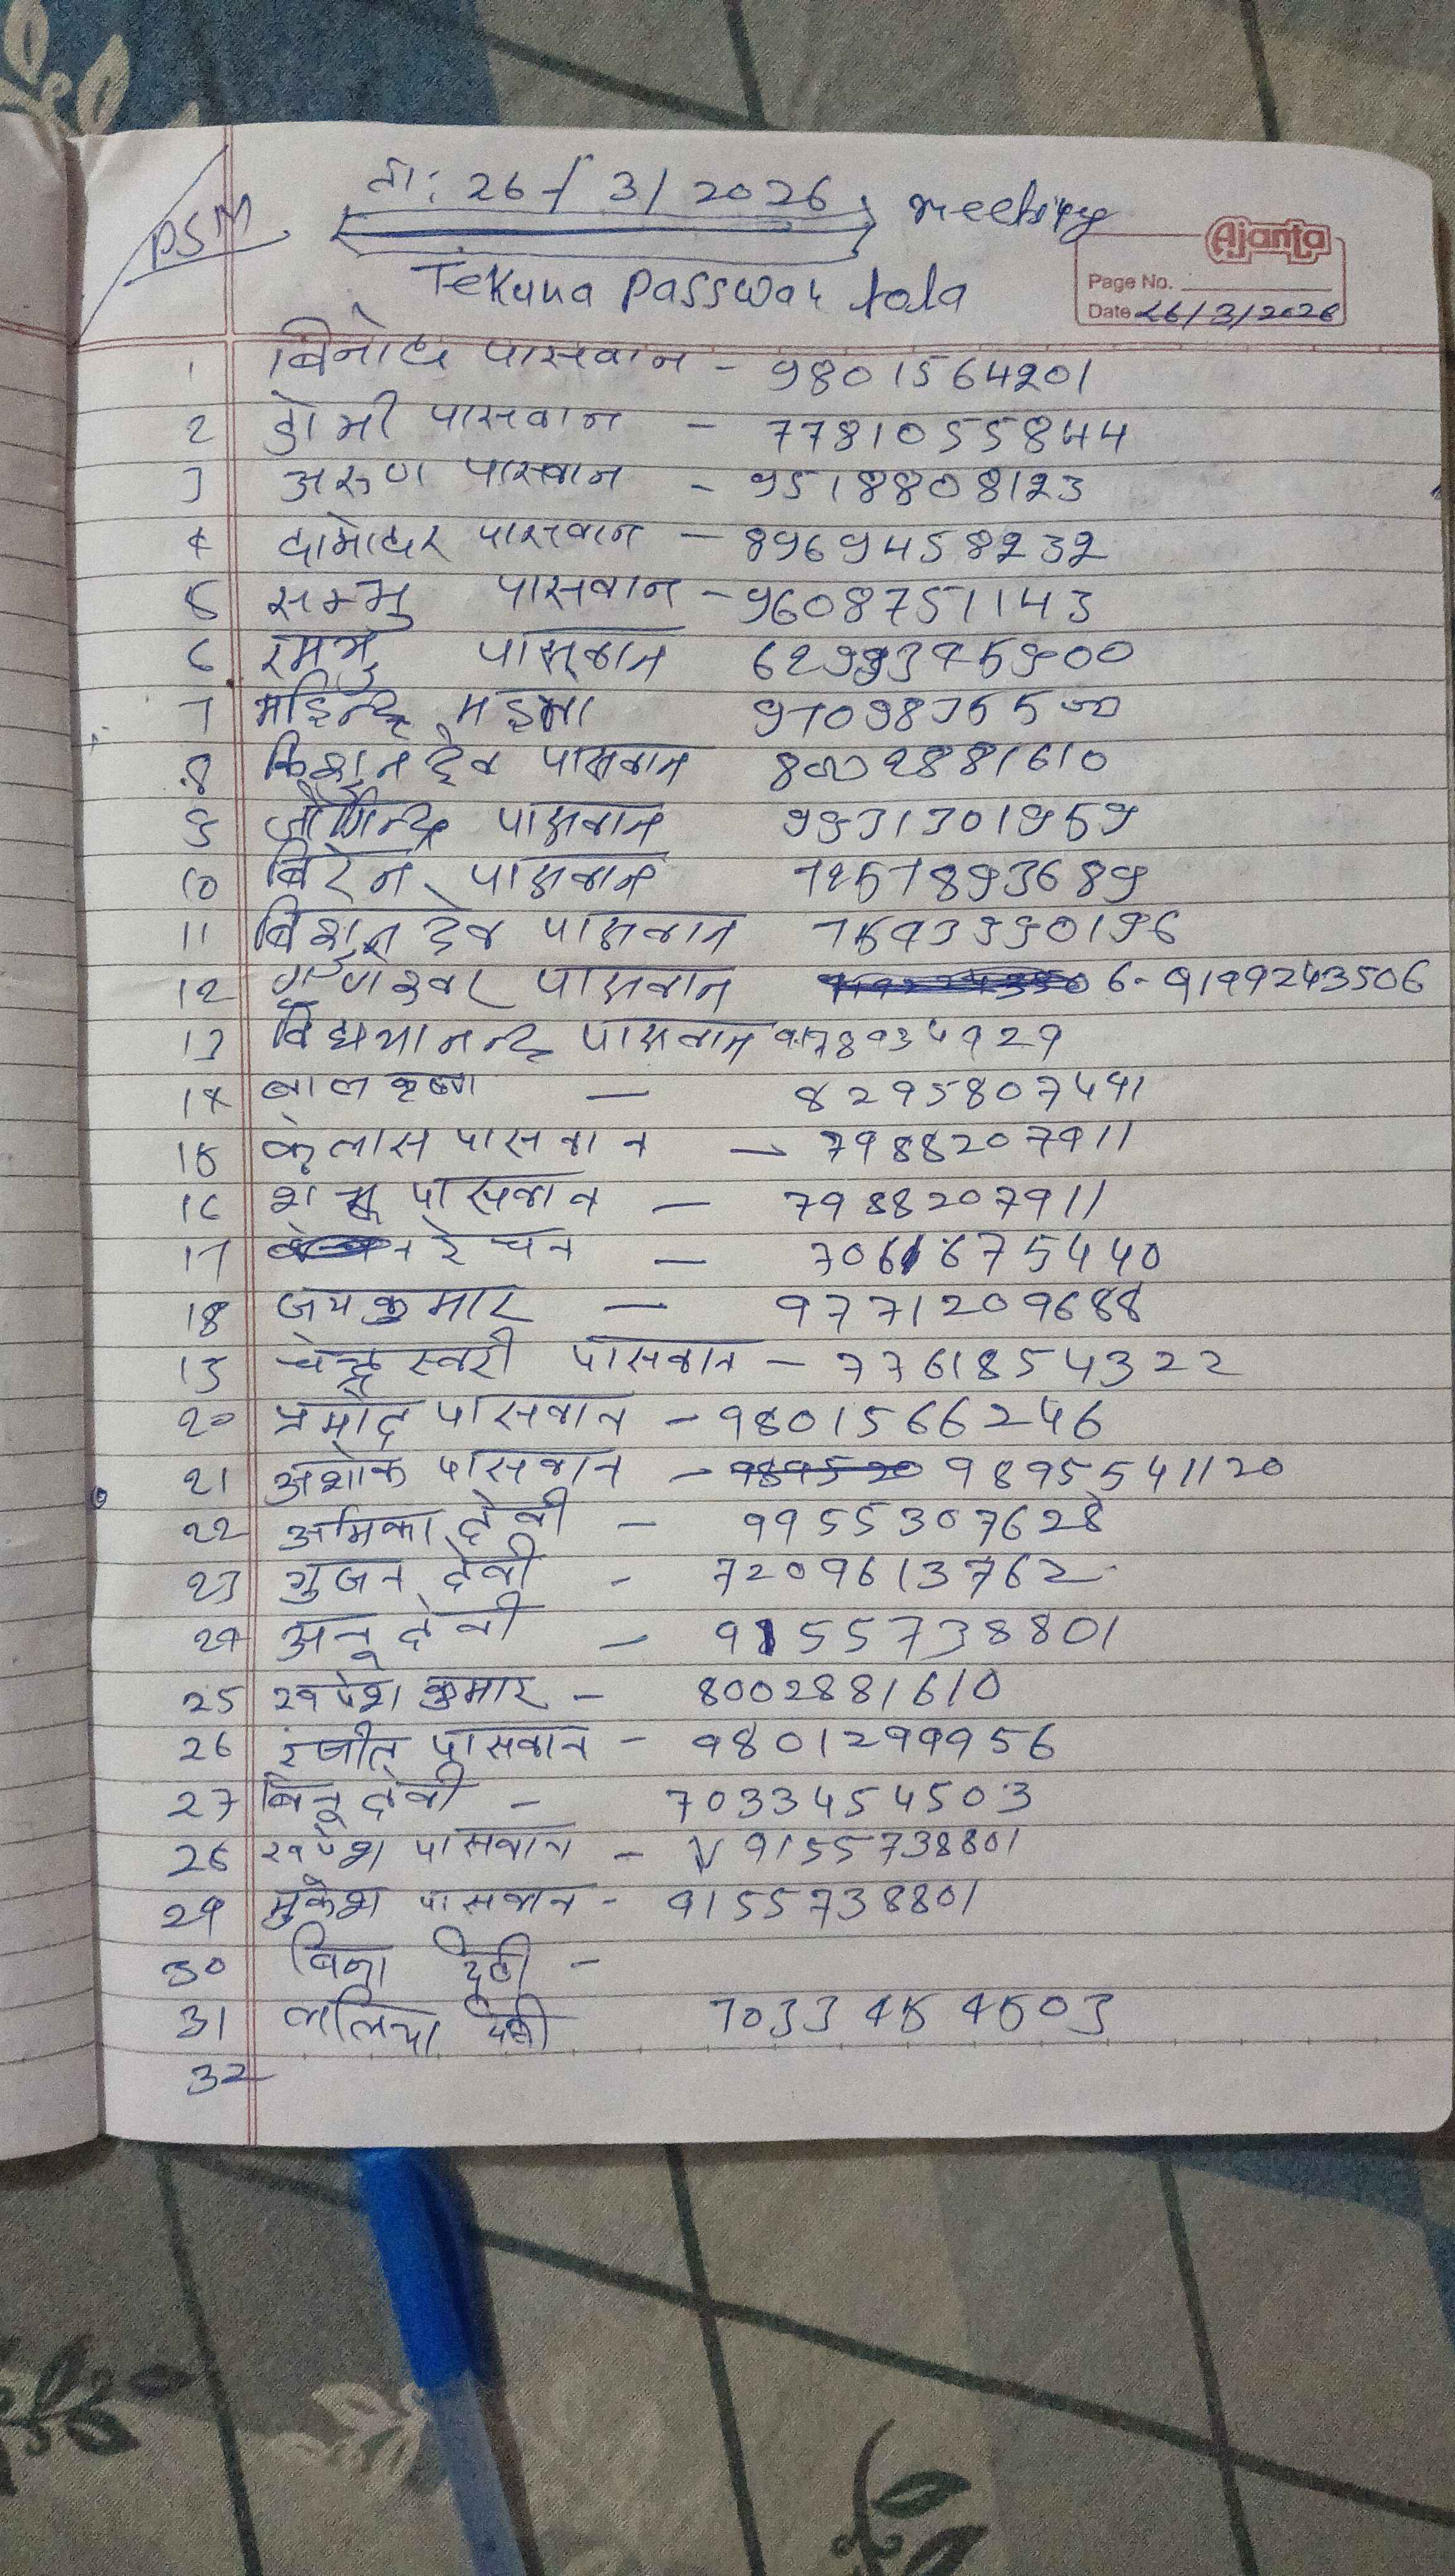 PSM
ता: 26-/3/2026 meeting
Ajanta
Tekuna Passwan tola
Page No.
Date 26/3/2026
1 बिनोद पासवान - 9801564201
2 डोमी पासवान - 7781055844
3 अरुण पासवान - 9518808123
4 दामोदर पासवान - 8969458232
5 सम्भु पासवान - 9608751143
6 पासवान
7 महिन्द्र
8 किशुन देव पासवान 8002881610
9 जोगिन्द्र पासवान 9931301959
10 बिरेन पासवान 7257893689
11 बिशुन देव पासवान
12 पासवान 6-9199243506
13 विद्यानन्द पासवान
14 बाल कृष्ण - 8295807491
15 केलास पासवान - 7988207911
16 पासवान - 7988207911
17 रे चन -
18 जय कुमार - 9771209688
19 चन्द्रेस्वरी पासवान - 7761854322
20 प्रमोद पासवान - 9801566246
21 अशोक पासवान - 9895541120
22 अमिका देवी - 9955307628
23 गुंजन देवी - 7209613762
24 अनू देवी - 9155738801
25 रूपेश कुमार - 8002881610
26 रंजीत पासवान - 9801299956
27 बिनू देवी - 7033454503
28 रूपेश पासवान - 9155738801
29 मुकेश पासवान - 9155738801
30 -
31 ललिया देवी 7033454503
32